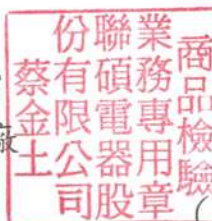 商品檢驗
業務專用章
聯碩電器股
份有限公司
蔡金土
廠